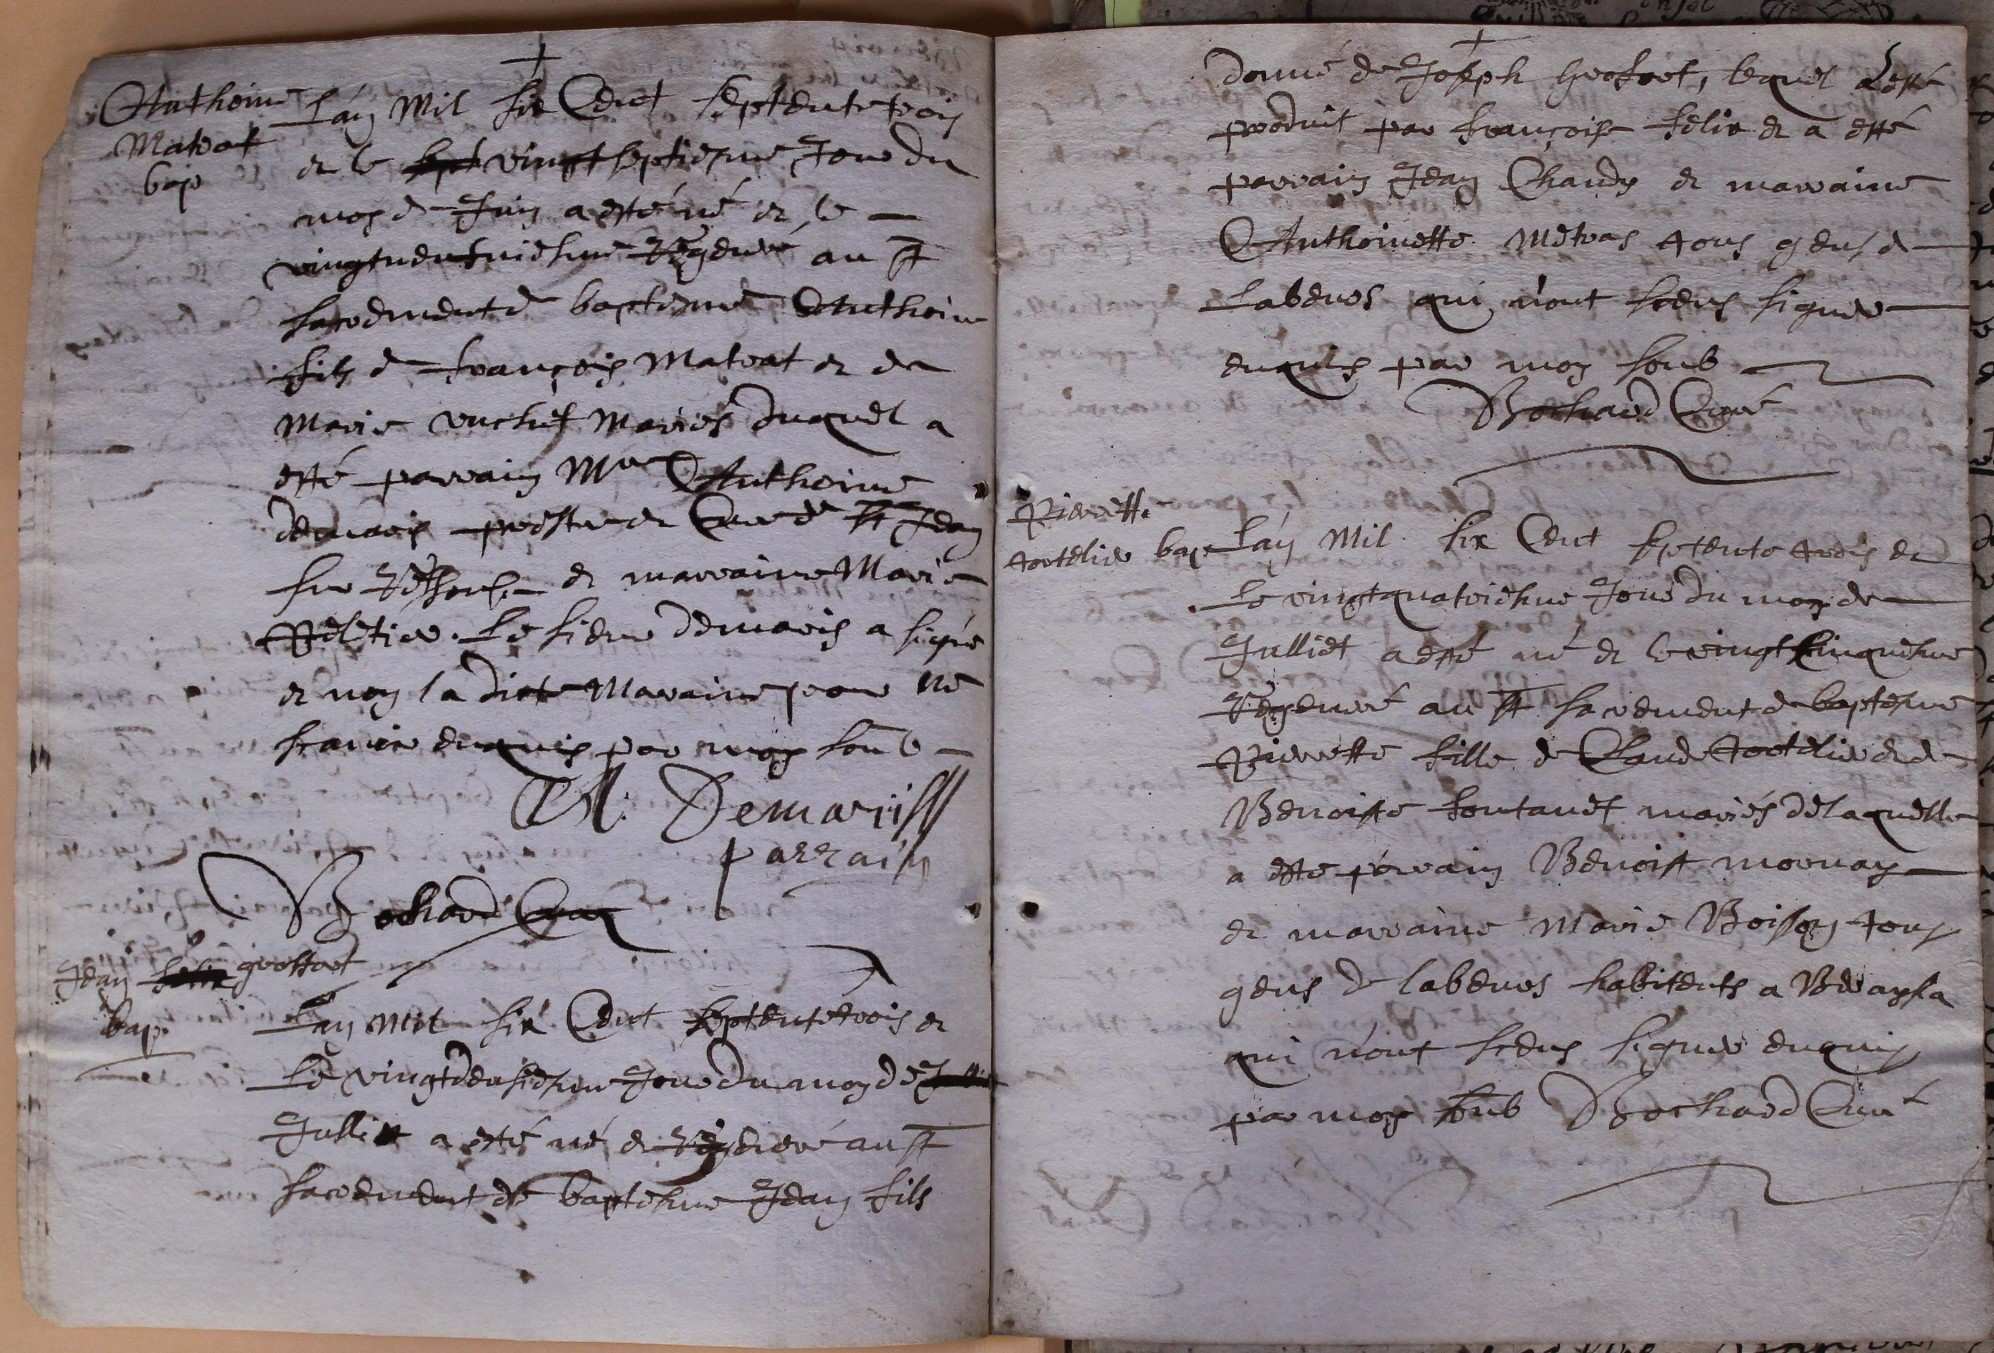 Anthoine
Matrat
bap
L'an Mil six Cent septente trois
et le vingt septiesme Jour du
mois de Juin a esté né et le
vingtneufviesme Regeneré au St
sacrement de baptesme Anthoine
fils de françois Matrat et de
Marie vuchet Mariés duquel a
esté parrain Mre Anthoine
demaris prestre et Curé de St Jean
sur et marraine Marie
Peletier. Le sieur demaris a signé
et non la dicte Maraine pour ne
scavoir enquis par moy soub
A. Demariss
parrain
Bochard Curé
Jean grosfort
bap.
L'an Mil six Cent septente trois et
Le vingtdeusiesme Jour du moy de
Julliet a esté né et Regeneré au St
sacrement de baptesme Jean fils
donné de Joseph Grosfort, lequel L'esté
produit par françoise felix et a esté
parrain Jean Chaudy et marraine
Anthoinette Metras tous gens de
Labeurs qui n'ont sceus signer
enquis par moy soub
Bochard Curé
Pierrette
tortelier bap
L'an Mil six Cent septente trois et
Le vingtquatriesme Jour du moy de
Julliet a esté né et le vingt sinquiesme
Regeneré au St sacrement de baptesme
Pierrette fille de Claude tortelier et de
Benoiste fontanet mariés de laquelle
a este parrain Benoist mornay
et marraine Marie Boisson tous
gens de labeurs habitents a
qui n'ont sceus signer enquis
par moy soub Bochard Curé